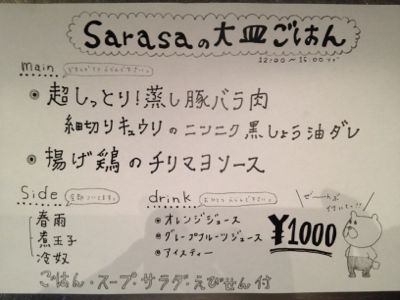 Sarasaの大皿ごはん
12:00～15:00マデ
main
超しっとり!蒸し豚バラ肉
細切りキュウリのニンニク黒しょう油ダレ
揚げ鶏のチリマヨソース
Side
全部ついてます。
春雨
煮玉子
冷奴
drink
オレンジジュース
グレープフルーツジュース
アイスティー
ぜーんぶ
付いてっ!!
¥1000
ごはん・スープ・サラダ・えびせん付